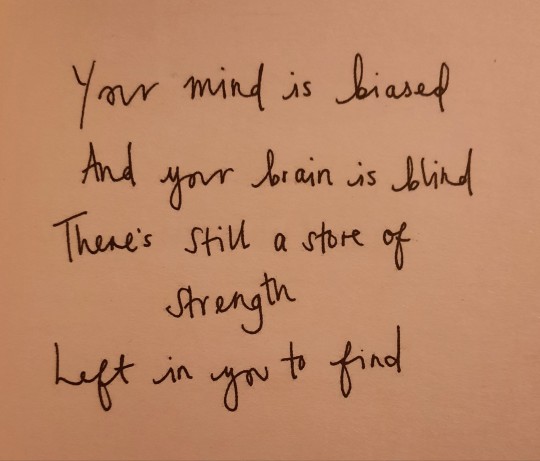 Your mind is biased
And your brain is blind
There's still a store of
strength
Left in you to find